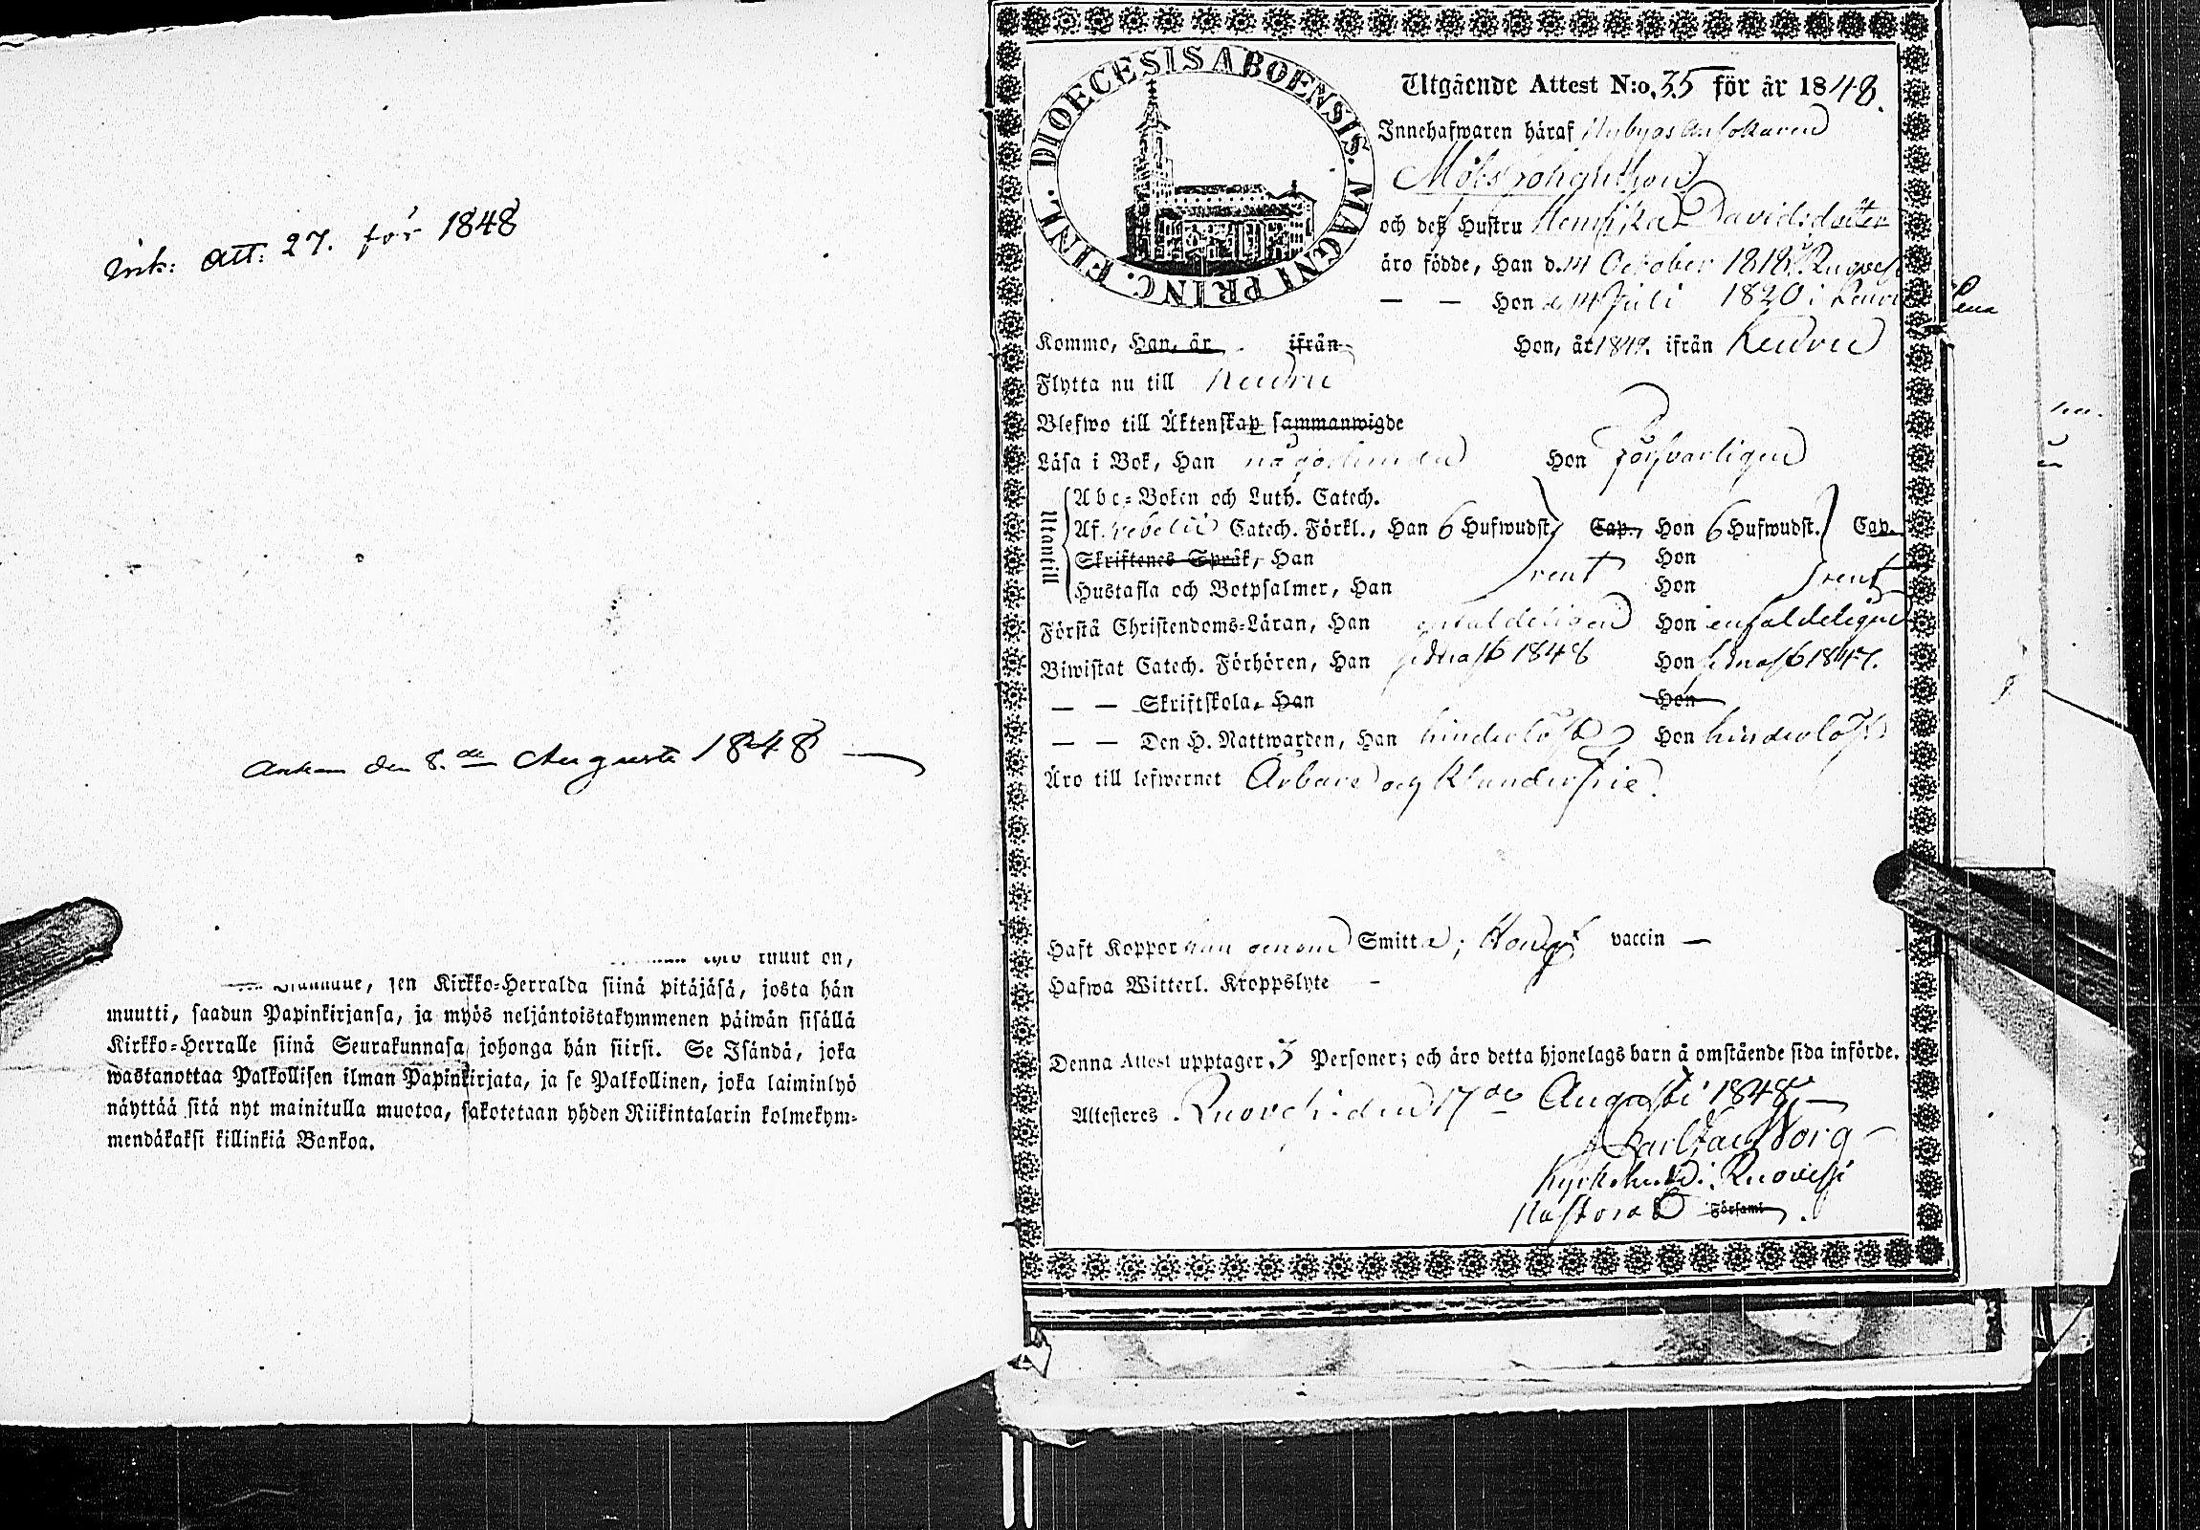 Ink: Att: 27. för 1848
Ankom den 8.de Augusti 1848
muut on,
sen Kirkko-Herralda siinä pitäjäsä, josta hän
muutti, saadun Papinkirjansa, ja myös neljäntoistakymmenen päiwän sisällä
Kirkko-Herralle siinä Seurakunnasa johonga hän siirsi. Se Isändä, joka
wastanottaa Palkollisen ilman Papinkirjata, ja se Palkollinen, joka laiminlyö
näyttää sitä nyt mainitulla muotoa, sakotetaan yhden Riikintalarin kolmekym-
mendäkaksi killinkiä Bankoa.
DIOECESIS ABOENSIS. MAGNI PRINC. FINL.
Utgående Attest N:o. 35 för år 1848.
Innehafwaren häraf
Mats Johansson
och deß Hustru Henrika Davidsdotter
äro födde, Han d. 14 October 1818 i Ruovesi
— — Hon d. 14 Juli 1820 i Keuru
Kommo, Han, år ifrån Hon, år 1847. ifrån Keuru
Flytta nu till Keuru
Blefwo till Äktenskap sammanwigde
Läsa i Bok, Han någorlunda Hon försvarligen
Utantill
Abc-Boken och Luth. Catech.
Af Svebelii Catech. Förkl., Han 6 Hufwudst. Cap., Hon 6 Hufwudst. Cap.
Skriftenes Språk, Han Hon
Hustafla och Botpsalmer, Han rent Hon rent
Förstå Christendoms-Läran, Han enfaldeligen Hon enfaldeligen
Biwistat Catech. Förhören, Han sednast 1848 Hon sednast 1847.
— — Skriftskola, Han Hon
— — Den H. Nattwarden, Han hinderlöst Hon hinderlöst
Äro till lefwernet Ärbare och Klanderfrie.
Haft Koppor han genom Smitta; Hon vaccin —
Hafwa Witterl. Kroppslyte -
Denna Attest upptager 3 Personer; och äro detta hjonelags barn å omstående sida införde.
Attesteres Ruovesi den 17de Augusti 1848
Carl Borg
Kyrkoherde i Ruovesi
Pastorat Församl.